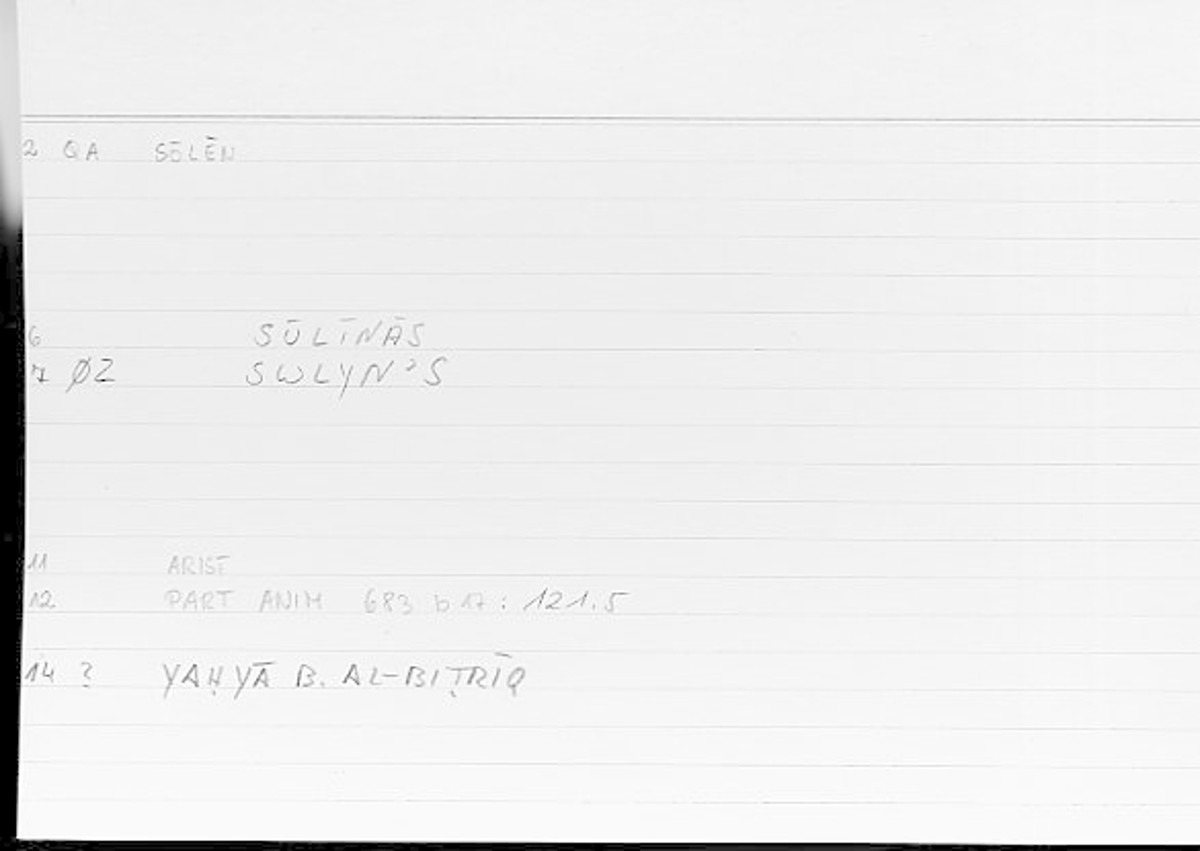 2 QA SŌLĒN
6 SŪLĪNĀS
7 ØZ SWLYN'S
11 ARIST
12 PART ANIM 683 b 17 : 121.5
14 ? YAḤYĀ B. AL-BIṬRĪQ